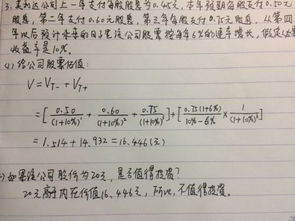 3. 某内达公司上一年支付每股股息为0.45元, 本年预期每股支付0.50元
股息, 第二年支付0.60元股息, 第三年每股支付0.75元股息, 从第四
年以后预计未来的日子里该公司股票按每年6%的速率增长, 假定
收益率是10%.
(1) 给公司股票估值:
V = V_T- + V_T+
= [0.50/(1+10%) + 0.60/(1+10%)² + 0.75/(1+10%)³] + [0.75(1+6%)/(10%-6%) × 1/(1+10%)³]
= 1.514 + 14.932 = 16.446(元)
如果该公司股价为20元, 是否值得投资?
20元高于内在价值16.446元, 所以, 不值得投资.